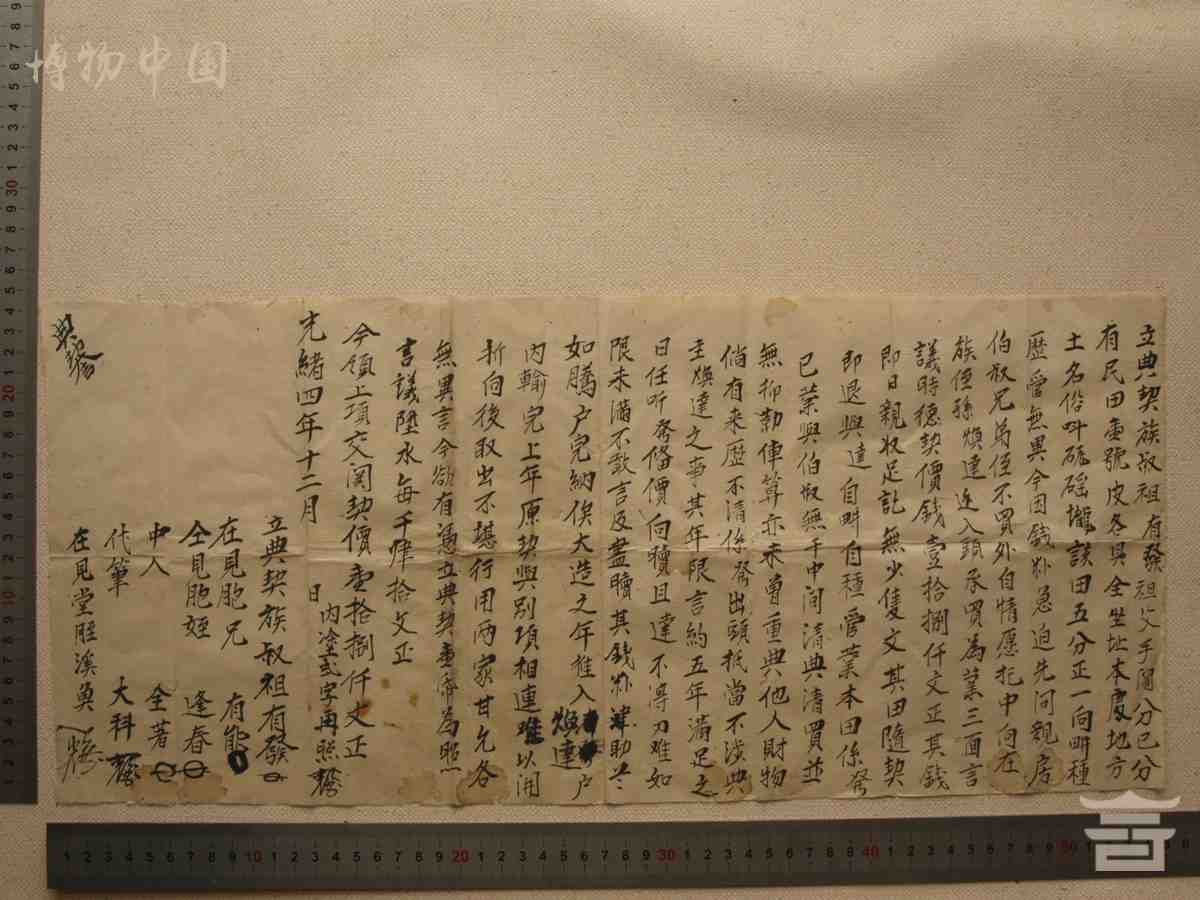 博物中国
立典契族叔祖有發祖父手鬮分已分
有民田壹號皮各具全坐址本處地方
土名俗叫 該田五分正一向畊種
歷管無異今因錢 急迫先问親房
伯叔兄弟侄不買外自情愿托中向在
族侄孫煥達 入頭承買為業三面言
議時 契價錢壹拾捌仟文正其錢
即日親收足訖無少隻文其田隨契
即退與達自畊自種管業本田係發
已業與伯叔無干中间清典清買並
無抑勒准算亦未曾重典他人財物
倘有来歷不清係發出頭抵當不涉典
主煥達之事其年限言約五年滿足之
日任听發俻價向贖且達不得刁难如
限未滿不敢言及盡贖其錢 助
如騰户完納俟大造之年推入煥達户
内輸完上年原契與别項相連难以開
折向後取出不堪行用两家甘允各
無異言今欲有憑立典契壹帋為照
言議 水每千 拾文正
今領上項交関契價壹拾捌仟文正
内塗 字再照
光緒四年十二月 日
立典契族叔祖有發
在見胞兄 有能
仝見胞姪 逢春
中人 全著
代筆 大科
在見堂 溪
典契